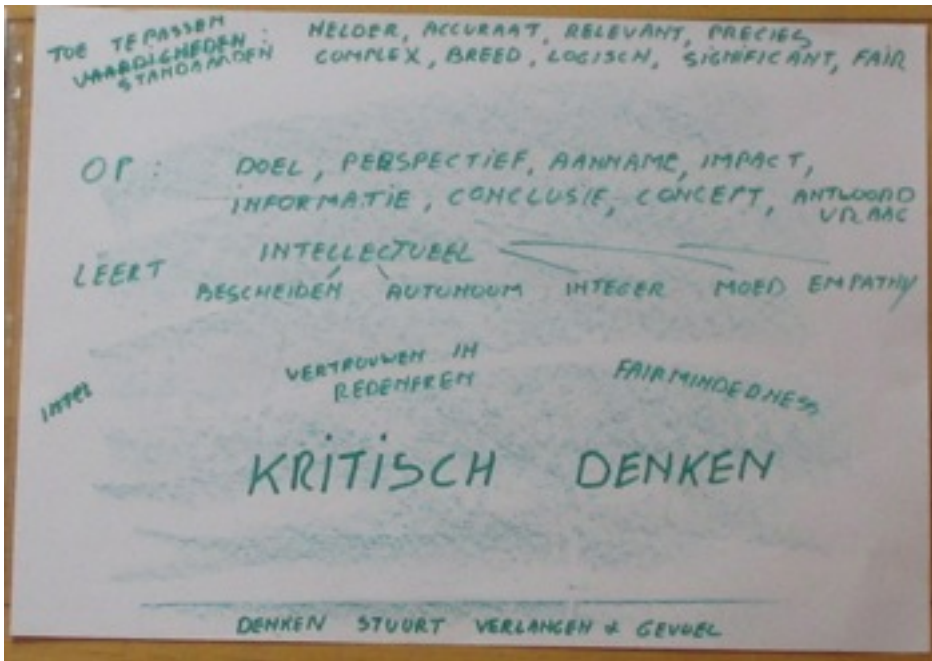 TOE TE PASSEN
VAARDIGHEDEN :
STANDAARDEN
HELDER, ACCURAAT, RELEVANT, PRECIES
COMPLEX, BREED, LOGISCH, SIGNIFICANT, FAIR
OP : DOEL, PERSPECTIEF, AANNAME, IMPACT,
INFORMATIE, CONCLUSIE, CONCEPT, ANTWOORD
VRAAG
LEERT INTELLECTUEEL
BESCHEIDEN AUTONOOM INTEGER MOED EMPATHY
VERTROUWEN IN
REDENEREN
FAIRMINDEDNESS
INTEL
KRITISCH DENKEN
DENKEN STUURT VERLANGEN & GEVOEL